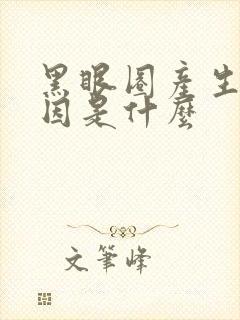 黑眼圈產生
因是什麼
文筆峰